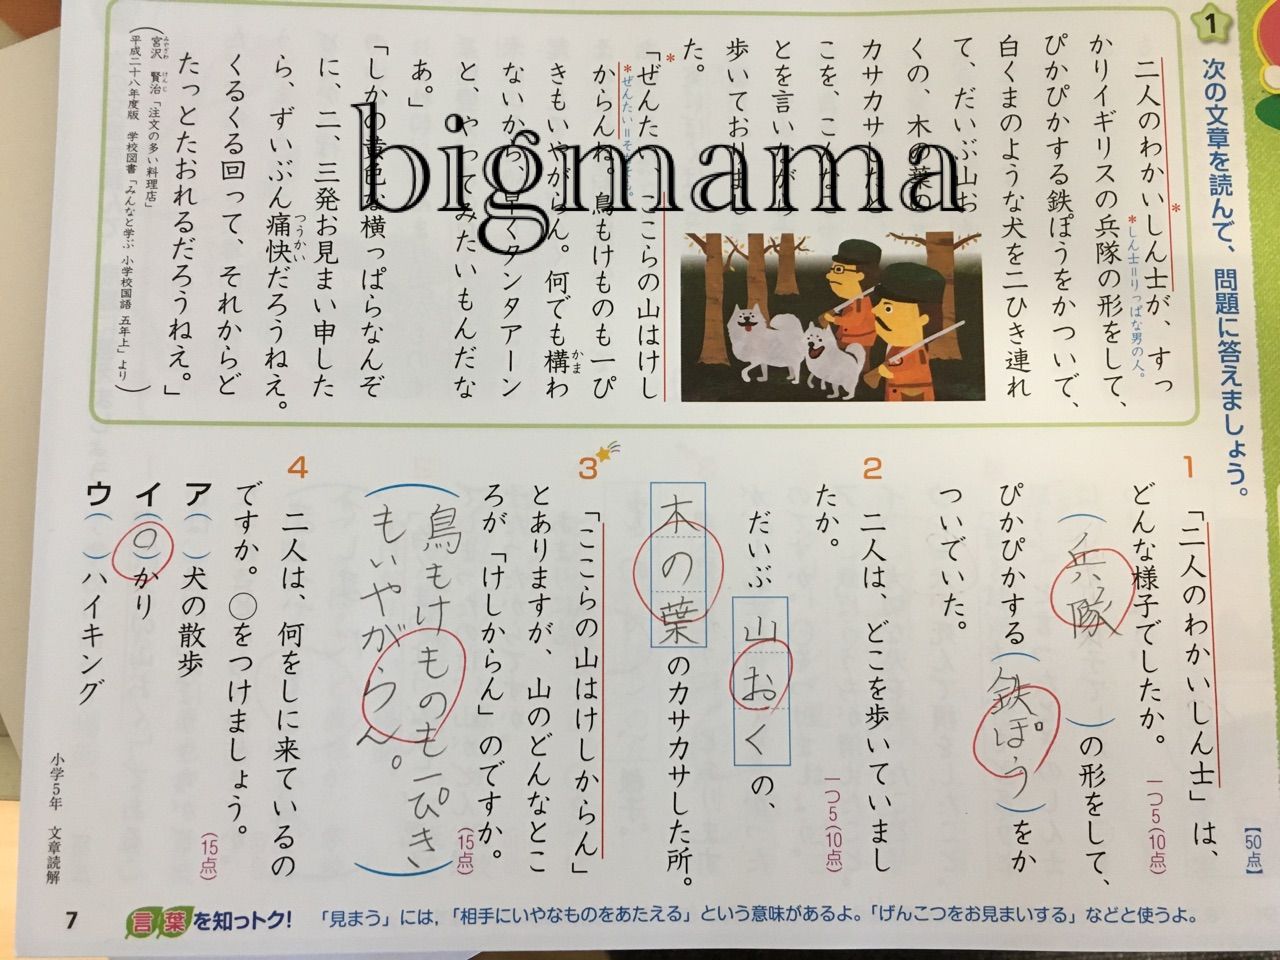 1
次の文章を読んで、問題に答えましょう。
【50点】
二人のわかいしん士が、すっ
*しん士=りっぱな男の人。
かりイギリスの兵隊の形をして、
ぴかぴかする鉄ぽうをかついで、
白くまのような犬を二ひき連れ
て、だいぶ山お
くの、木の葉の
カサカサしたと
こを、こんなこ
とを言いながら
歩いておりまし
た。
「ぜんたい、ここらの山はけし
からんね。鳥もけものも一ぴ
きもいやがらん。何でも構わ
かま
ないから、早くタンタアーン
と、やってみたいもんだな
あ。」
「しかの黄色な横っぱらなんぞ
に、二、三発お見まい申した
ら、ずいぶん痛快だろうねえ。
つうかい
くるくる回って、それからど
たっとたおれるだろうねえ。」
(宮沢 賢治「注文の多い料理店」
みやざわ けんじ
平成二十八年度版 学校図書「みんなと学ぶ 小学校国語 五年上」より)
bigmama
1
「二人のわかいしん士」は、
どんな様子でしたか。
一つ5(10点)
(兵隊)の形をして、
ぴかぴかする(鉄ぽう)をか
ついでいた。
2
二人は、どこを歩いていまし
たか。
一つ5(10点)
だいぶ山おくの、
木の葉のカサカサした所。
3
「ここらの山はけしからん」
とありますが、山のどんなとこ
ろが「けしからん」のですか。
(15点)
(鳥もけものも一ぴき、
もいやがらん。)
4
二人は、何をしに来ているの
ですか。○をつけましょう。
(15点)
ア( )犬の散歩
イ(○)かり
ウ( )ハイキング
小学5年 文章読解
7
言葉を知っトク!
「見まう」には,「相手にいやなものをあたえる」という意味があるよ。「げんこつをお見まいする」などと使うよ。